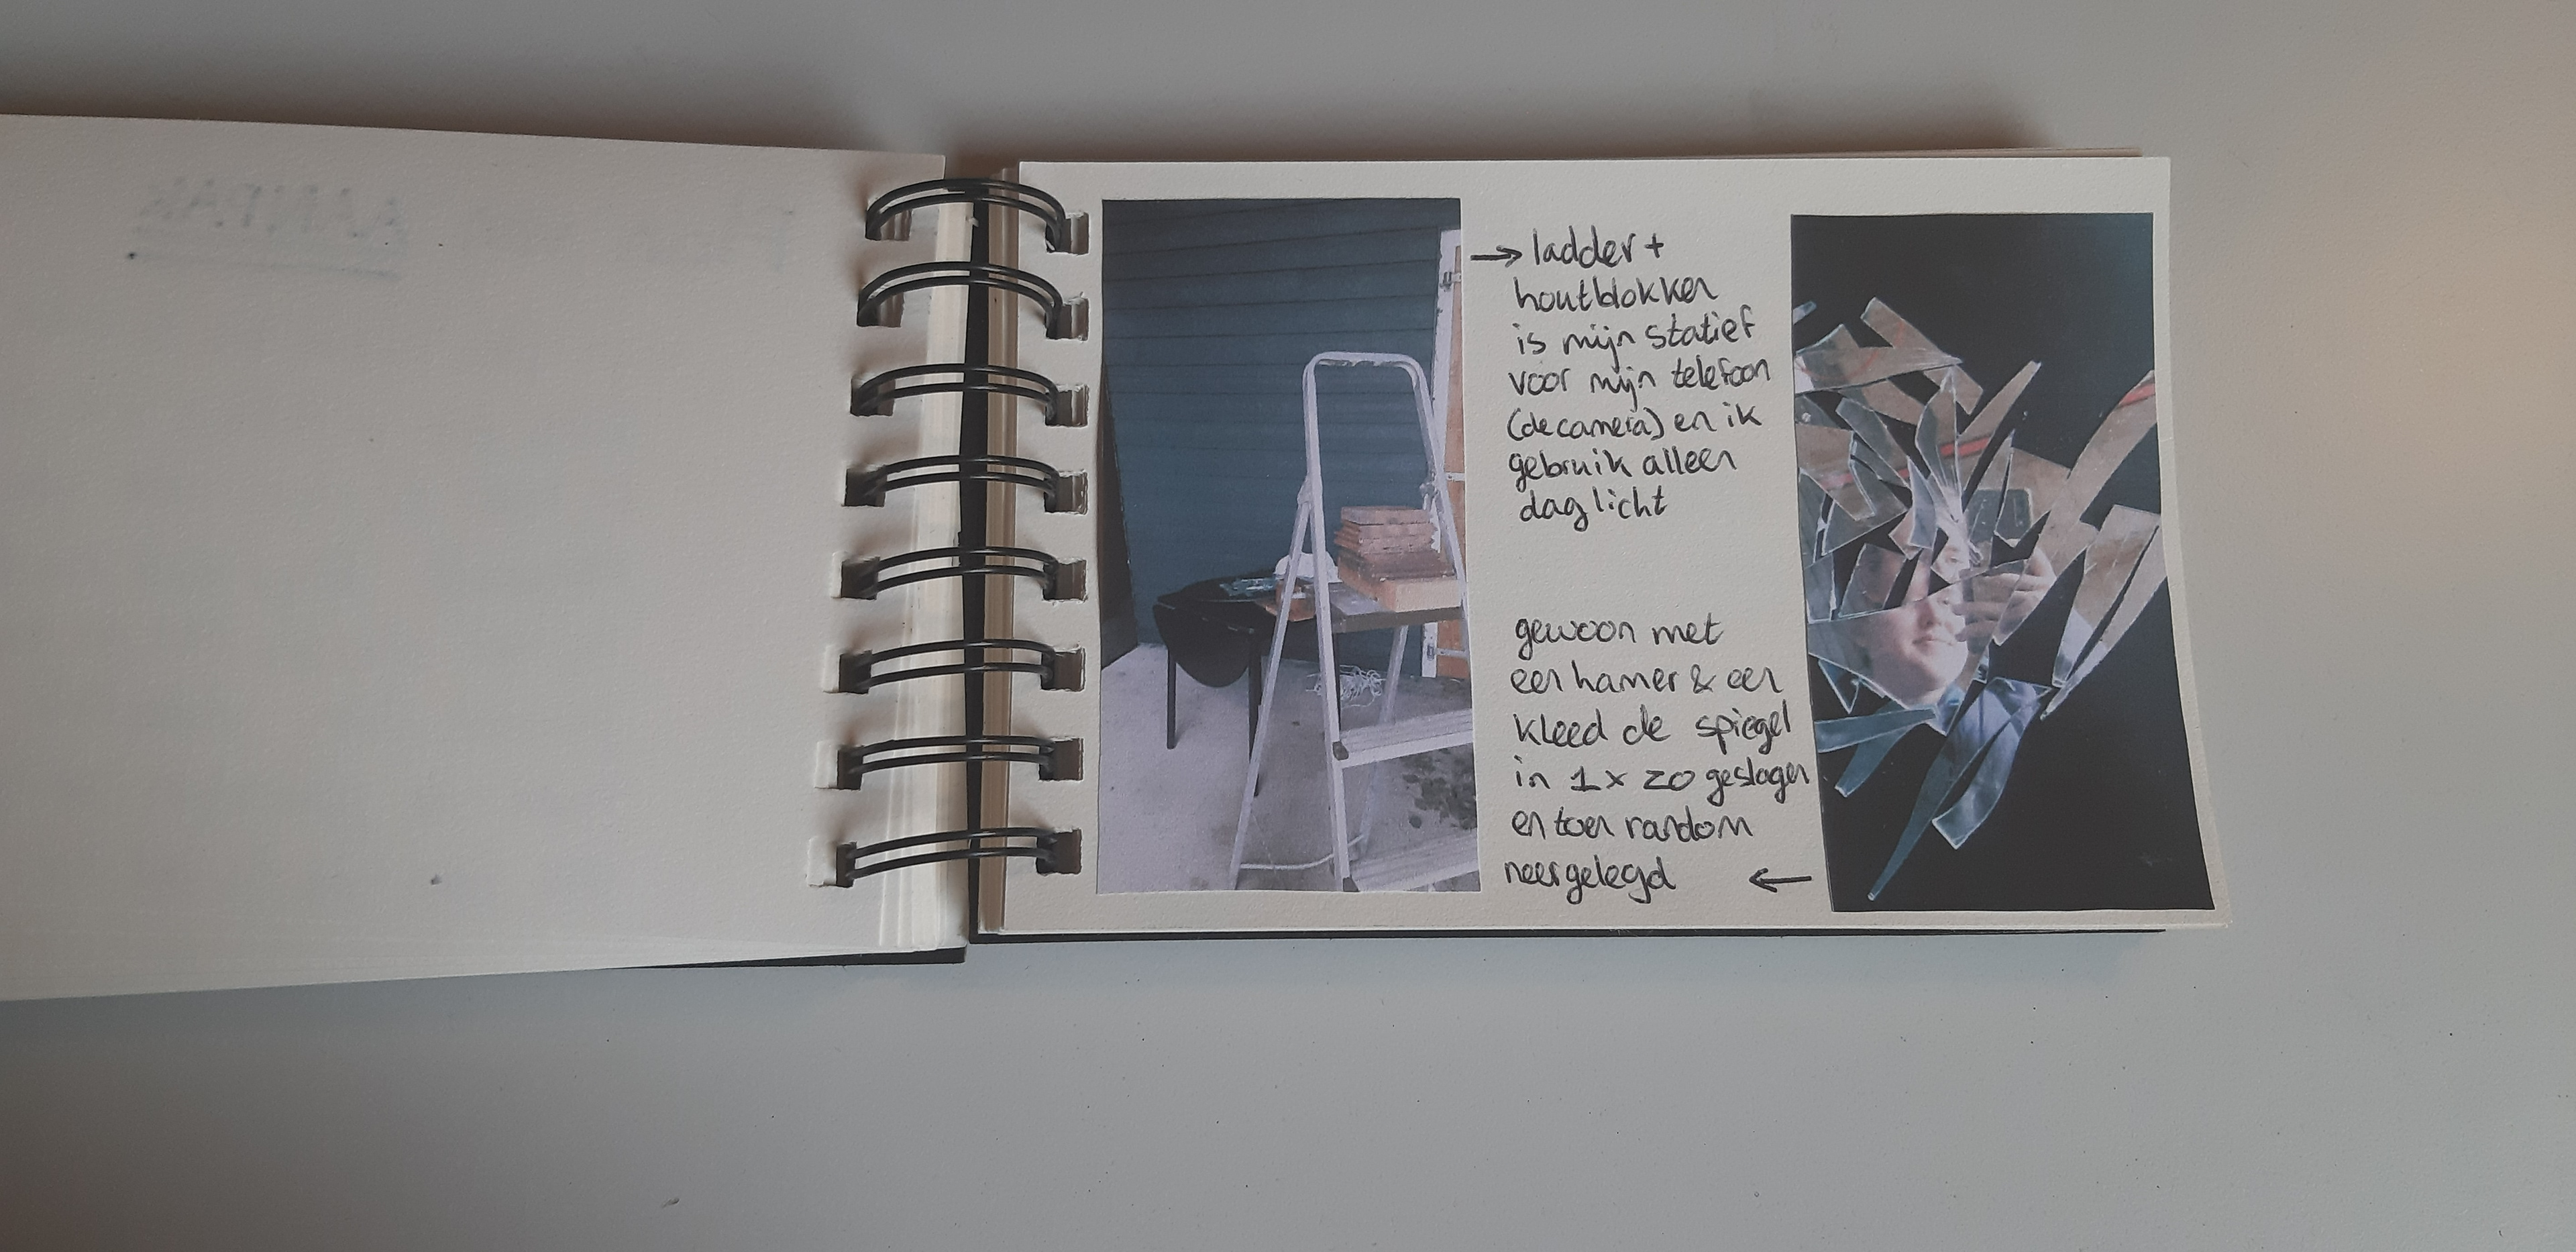 AANPAK
→ ladder +
houtblokken
is mijn statief
voor mijn telefoon
(de camera) en ik
gebruik alleen
daglicht
gewoon met
een hamer & een
kleed de spiegel
in 1x zo geslagen
en toen random
neergelegd ←